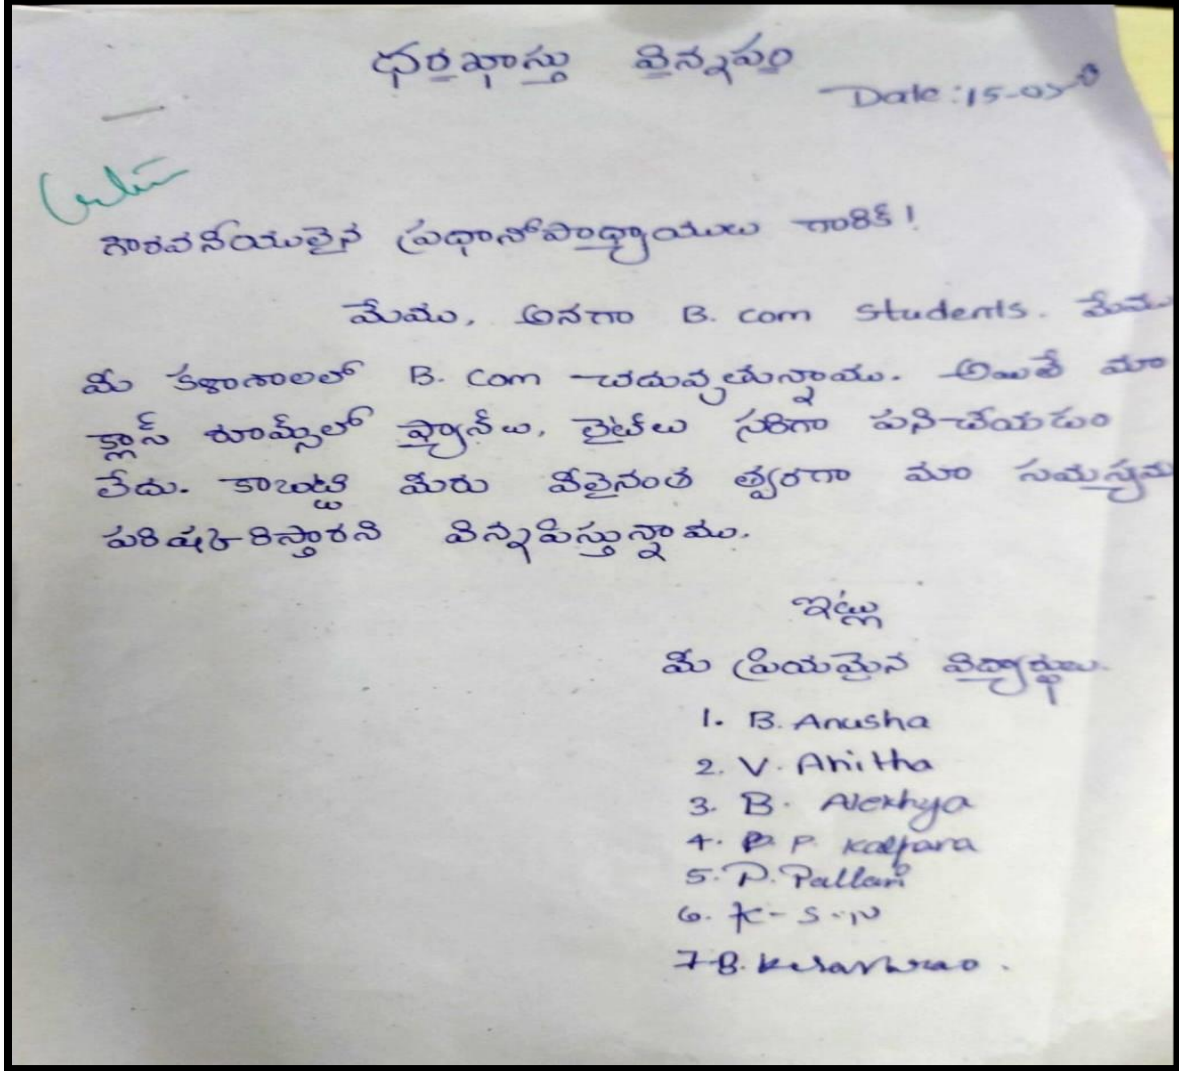 ధరఖాస్తు విన్నపం
Date : 15-03-
గౌరవనీయులైన ప్రధానోపాధ్యాయులు గారికి !
మేము, అనగా B. com students. మేము
మీ కళాశాలలో B. Com చదువుతున్నాము. అయితే మా
క్లాస్ రూమ్స్‌లో ఫ్యాన్‌లు, లైట్‌లు సరిగా పనిచేయడం
లేదు. కాబట్టి మీరు వీలైనంత త్వరగా మా సమస్యను
పరిష్కరిస్తారని విన్నపిస్తున్నాము.
ఇట్లు
మీ ప్రియమైన విద్యార్థులు.
1. B. Anusha
2. V. Anitha
3. B. Alekhya
4. P. Kalpana
5. P. Pallavi
6. K - S. N
7 B. Kesavarao.